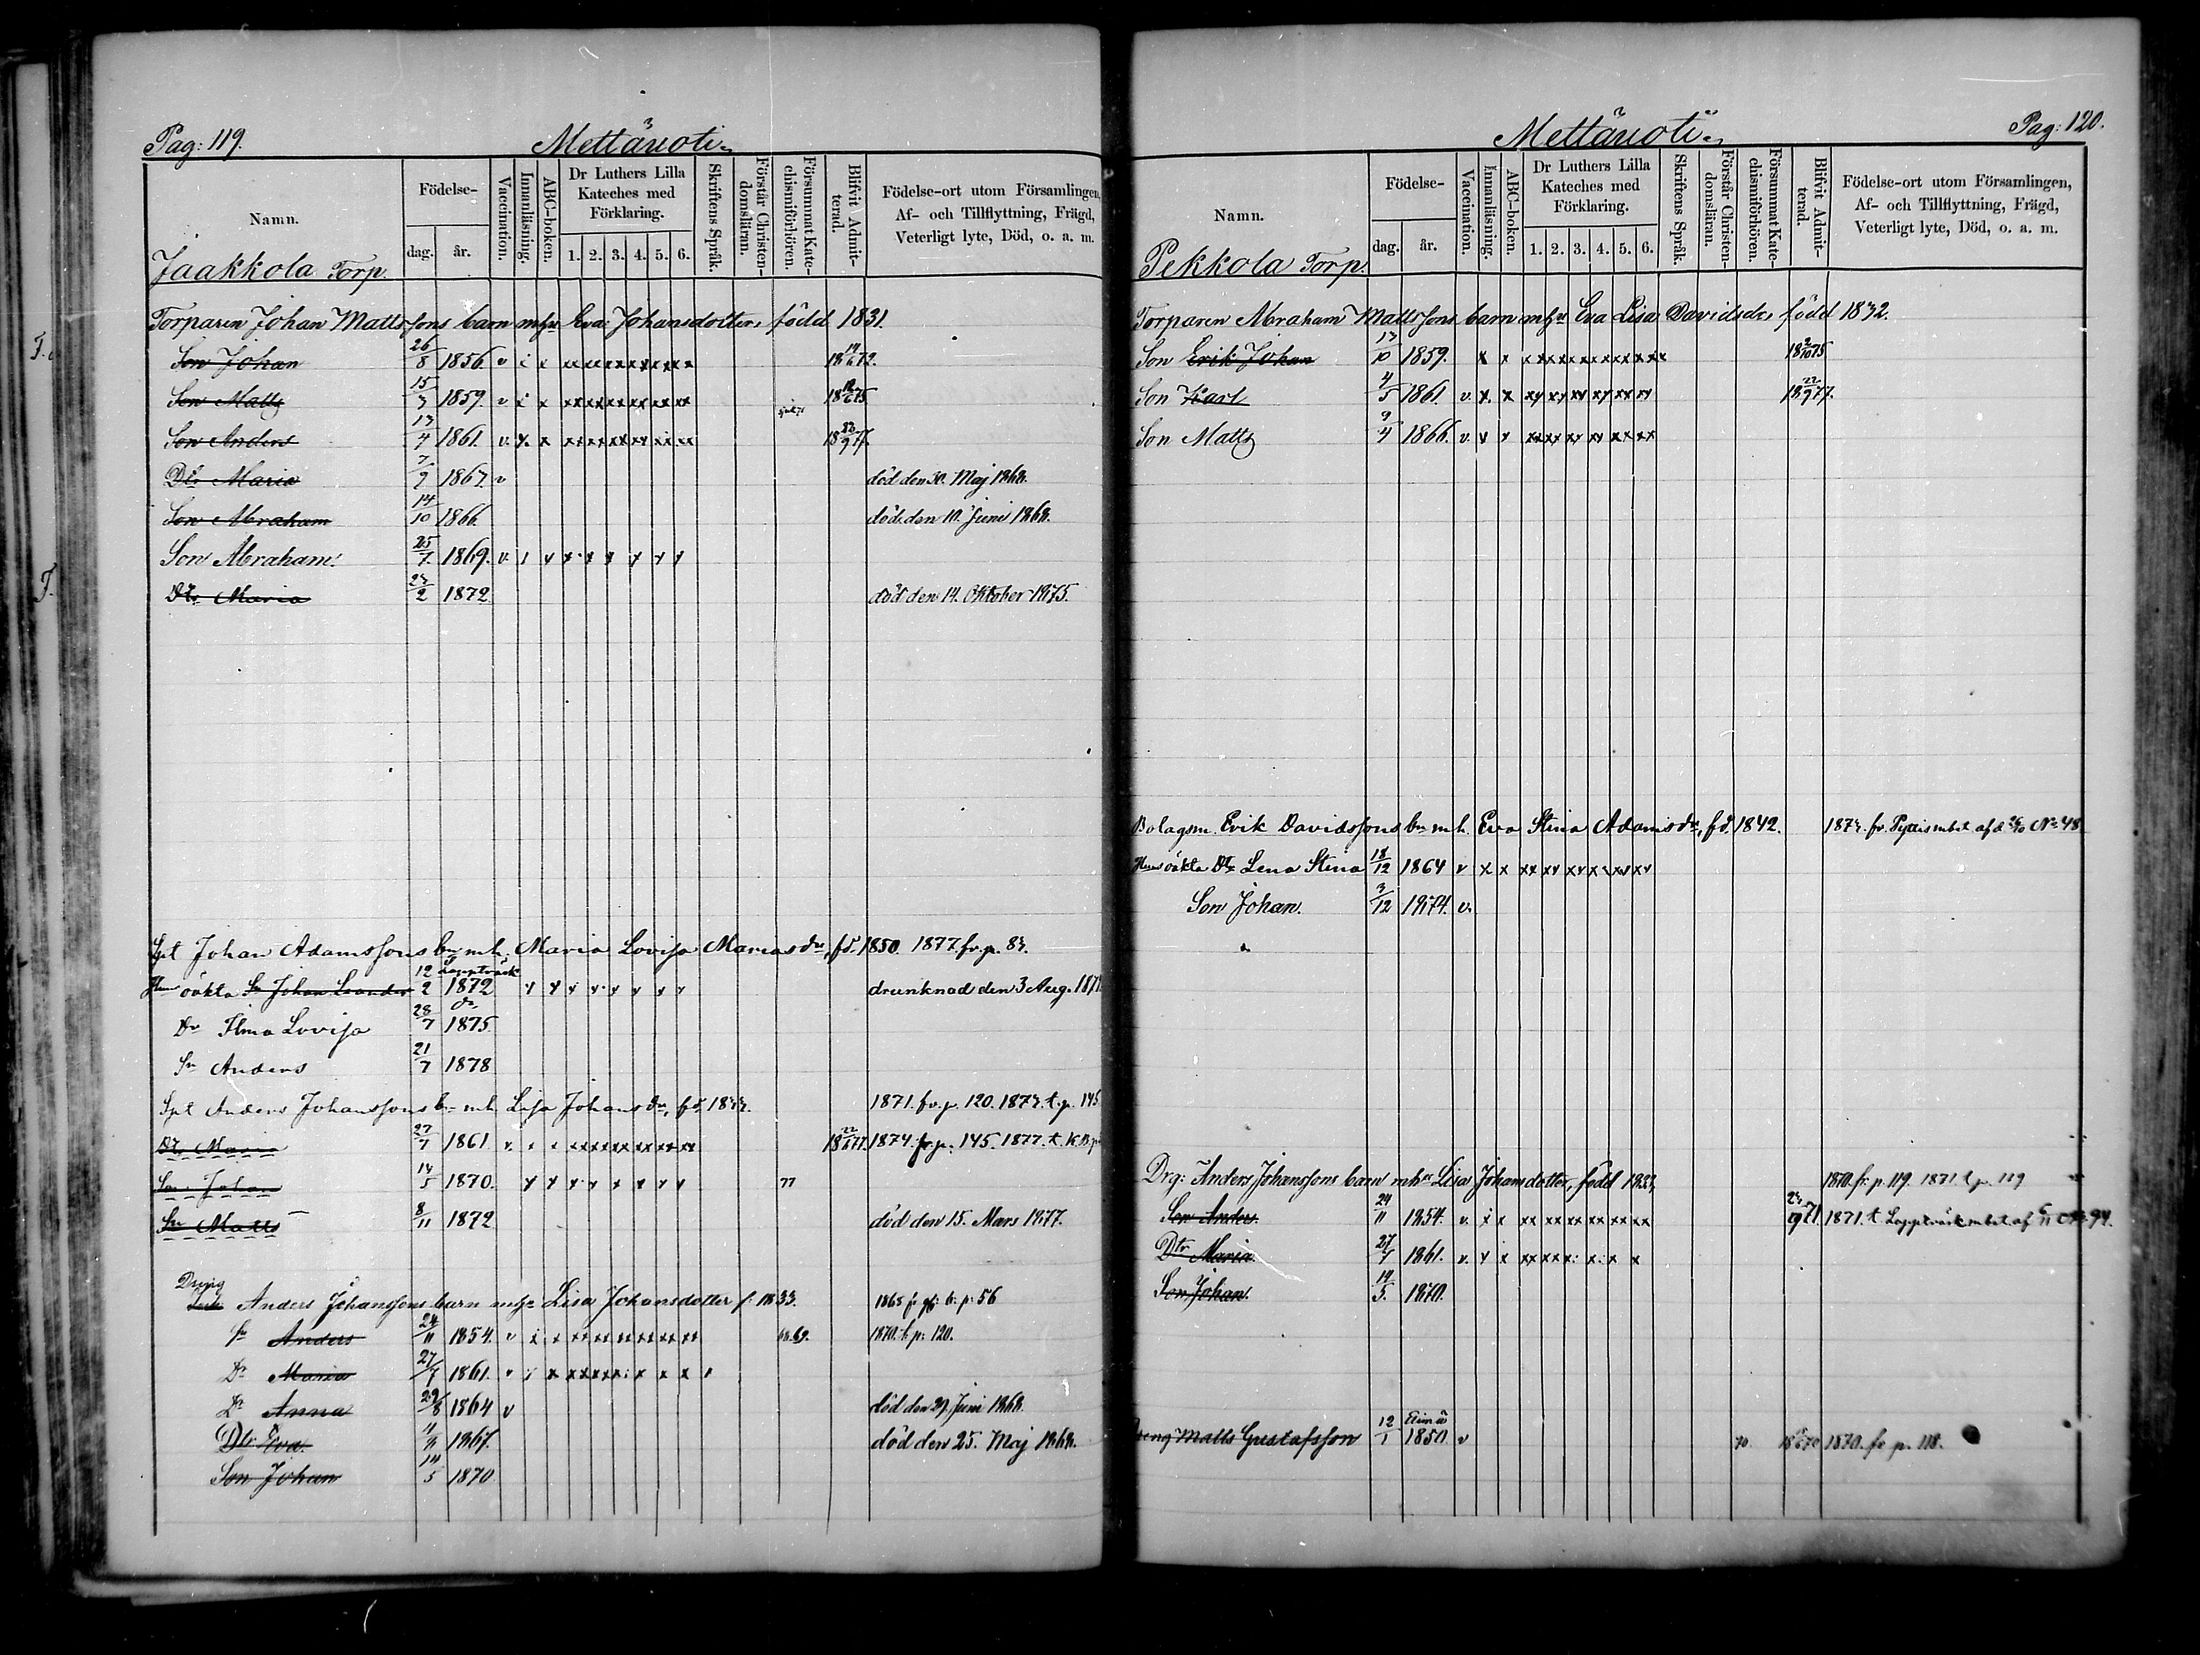 Pag: 119.
Mettänoti
Namn.
Födelse-
dag.
år.
Vaccination.
Innanläsning.
ABC-boken.
Dr Luthers Lilla Kateches med Förklaring.
1. 2. 3. 4. 5. 6.
Skriftens Språk.
Förstår Christendomsläran.
Försummat Katechismiförhören.
Blifvit Admitterad.
Födelse-ort utom Församlingen, Af- och Tillflyttning, Frägd, Veterligt lyte, Död, o. a. m.
Jaakkola Torp.
Torparen Johan Mattssons barn mhu Eva Johansdotter född 1831.
Son Johan 26/8 1856. v
Son Matts 15/3 1859. v
Son Anders 13/4 1861. v
Dtr Maria 7/9 1867. v död den 30. Maj 1868.
Son Abraham 14/10 1866. död den 10. Juni 1868.
Son Abraham 25/7 1869. v
Dtr Maria 23/2 1872 död den 14. Oktober 1875.
Spt Johan Adamssons bn mh. Maria Lovisa Mariasdr, fd. 1850. 1877. fr. p. 83.
Hus oäkta Sn Johan Leander 12/2 Lappträsk 1872 drunknad den 3 Aug. 187
Dr Ilma Lovisa 28/7 1875.
Sn Anders 21/7 1878
Spt Anders Johanssons bn mh Lisa Johansdr, fd. 1833. 1871. fr. p. 120. 1873. t. p. 145
Dtr Maria 27/7 1861 v. 1874. fr. p. 145. 1877. t. K.B. p
Son Johan 14/5 1870. 77
Sn Matts 8/11 1872 död den 15. Mars 1877.
Dreng
Anders Johanssons barn mhu Lisa Johansdotter f. 1833. p: 56
Sn Anders 24/11 1854. v 68.69. 1870. t. p: 120.
Dr Maria 27/7 1861. v
Dr Anna 29/8 1864 v död den 29. Juni 1868.
Dtr Eva 1867. död den 25. Maj 1868.
Son Johan 14/5 1870
Pag: 120.
Mettänoti
Namn.
Födelse-
dag.
år.
Vaccination.
Innanläsning.
ABC-boken.
Dr Luthers Lilla Kateches med Förklaring.
1. 2. 3. 4. 5. 6.
Skriftens Språk.
Förstår Christendomsläran.
Försummat Katechismiförhören.
Blifvit Admitterad.
Födelse-ort utom Församlingen, Af- och Tillflyttning, Frägd, Veterligt lyte, Död, o. a. m.
Pekkola Torp.
Torparen Abraham Mattssons barn mhu Eva Lisa Davidsdr född 1832.
Son Erik Johan 13/10 1859.
Son Karl 4/5 1861. v
Son Matts 9/4 1866. v
Bolagsm. Erik Davidssons bn mh. Eva Stina Adamsdr, fd. 1842. 1873. fr. Pyttis mbet af d. No 48
Hus oäkta Dtr Lena Stina 18/12 1864 v
Son Johan. 3/12 1874. v.
Drg: Anders Johanssons barn mhu Lisa Johansdotter, född 1833, 1870. fr. p. 119. 1871 t. p. 119
Son Anders. 24/11 1854. v. 1871. t. Lappträsk mbet af No 94.
Dtr Maria 27/7 1861. v.
Son Johan. 14/5. 1870.
Dreng Matts Gustafsson 12/1 Elimä 1850 v 70. 1870. fr. p. 118.